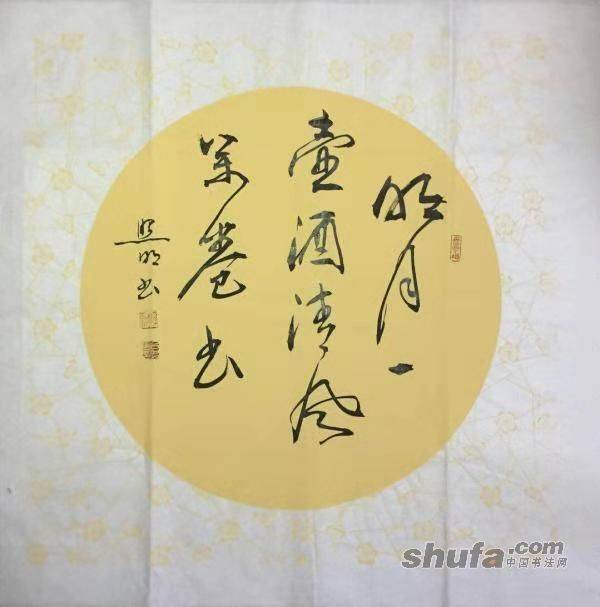 明月一
壶酒清风
万卷书
照明书
shufa.com
中国书法网